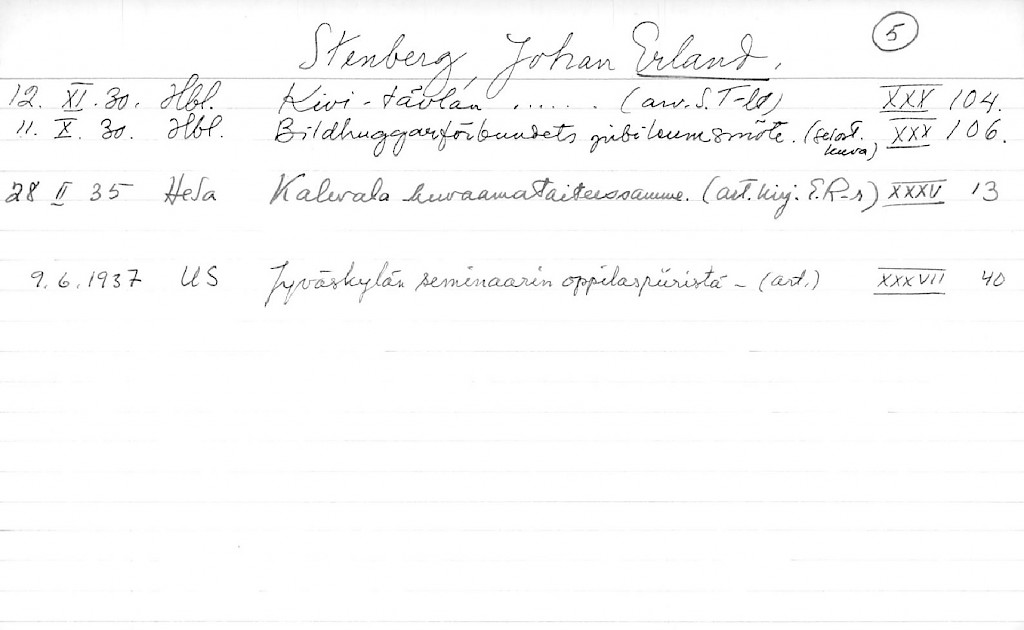 5
Stenberg, Johan Erland.
12. XI. 30. Hbl. Kivi-tävlan ...... (arv. S. T-lt) XXX 104.
11. X. 30. Hbl. Bildhuggarförbundets jubileumsmöte. (selost. kuva) XXX 106.
28 II 35 HeSa Kalevala kuvaamataiteessamme. (art. kirj. E. R-r) XXXV 13
9.6.1937 US Jyväskylän seminaarin oppilaspiiristä - (art.) XXXVII 40